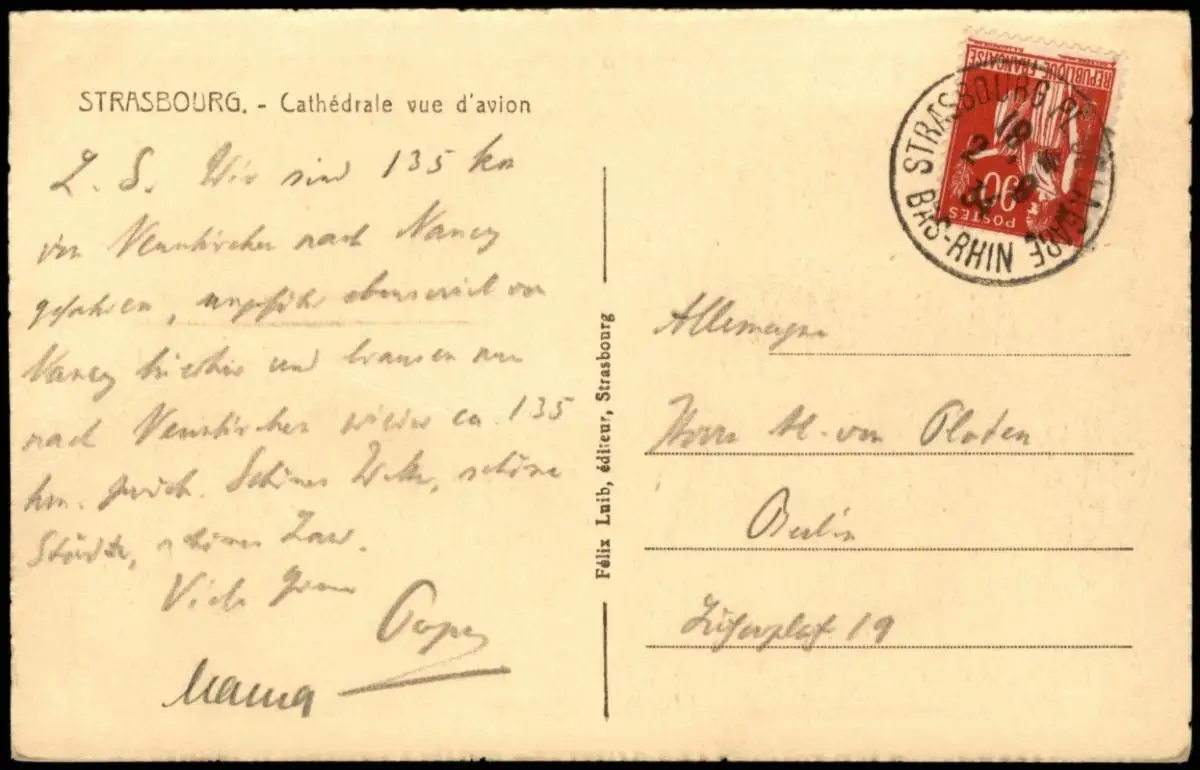 STRASBOURG. - Cathédrale vue d'avion
L. S. Wir sind 135 km
von Neunkirchen nach Nancy
gefahren, ungefähr ebensoviel von
Nancy hierher und brausen nun
nach Neunkirchen wieder ca. 135
km. zurück. Schönes Wetter, schöne
Städte, schönes Land.
Viele Grüsse
Papa
Mama
Félix Luib, éditeur, Strasbourg
REPUBLIQUE FRANÇAISE
POSTES
90
STRASBOURG GARE
BAS-RHIN
18
2
Allemagne
Herrn v. Platen
Berlin
19